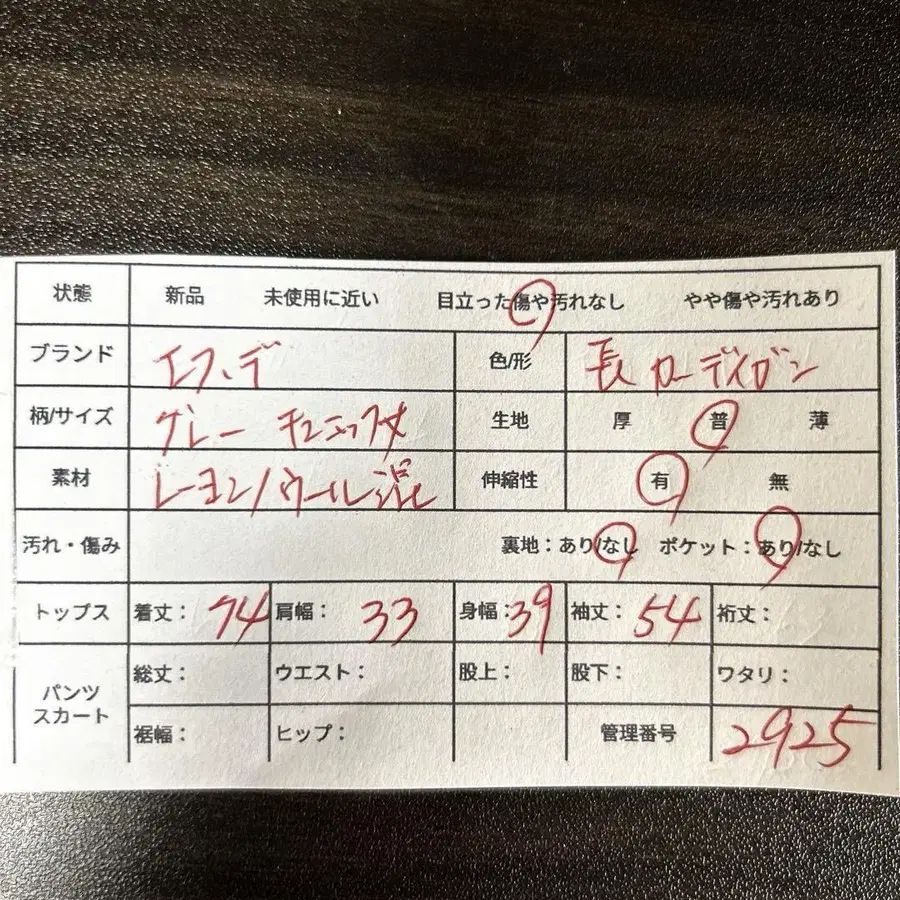 状態 新品 未使用に近い 目立った傷や汚れなし やや傷や汚れあり
ブランド エフ、デ 色/形 長カーディガン
柄/サイズ グレー 生地 厚 普 薄
素材 レーヨン/ウール 伸縮性 有 無
汚れ・傷み 裏地：あり/なし ポケット：あり/なし
トップス 着丈： 74 肩幅： 33 身幅： 39 袖丈： 54 裄丈：
パンツ スカート
総丈： ウエスト： 股上： 股下： ワタリ：
裾幅： ヒップ： 管理番号 2925